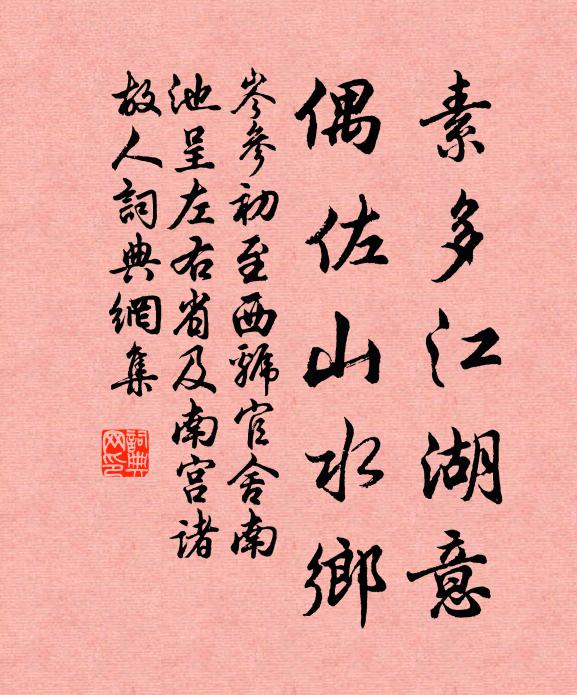 素多江湖意
偶佐山水鄉
岑參初至西虢官舍南
池呈左右省及南宮諸
故人詞典網集
詞典網印